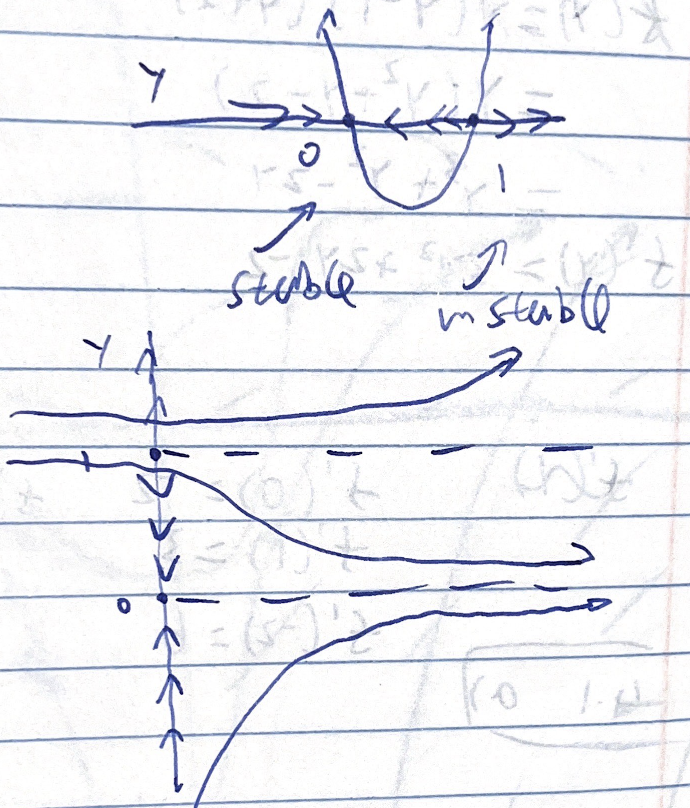 Y
0 1
stable
unstable
Y
0